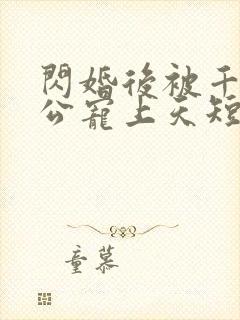 閃婚後被千
公寵上天短
童慕